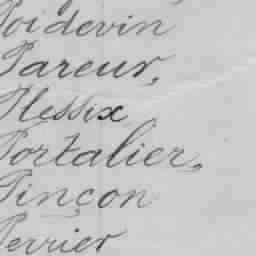 Poidevin
Pareur,
Plessix
Portalier,
Pinçon
Perrier